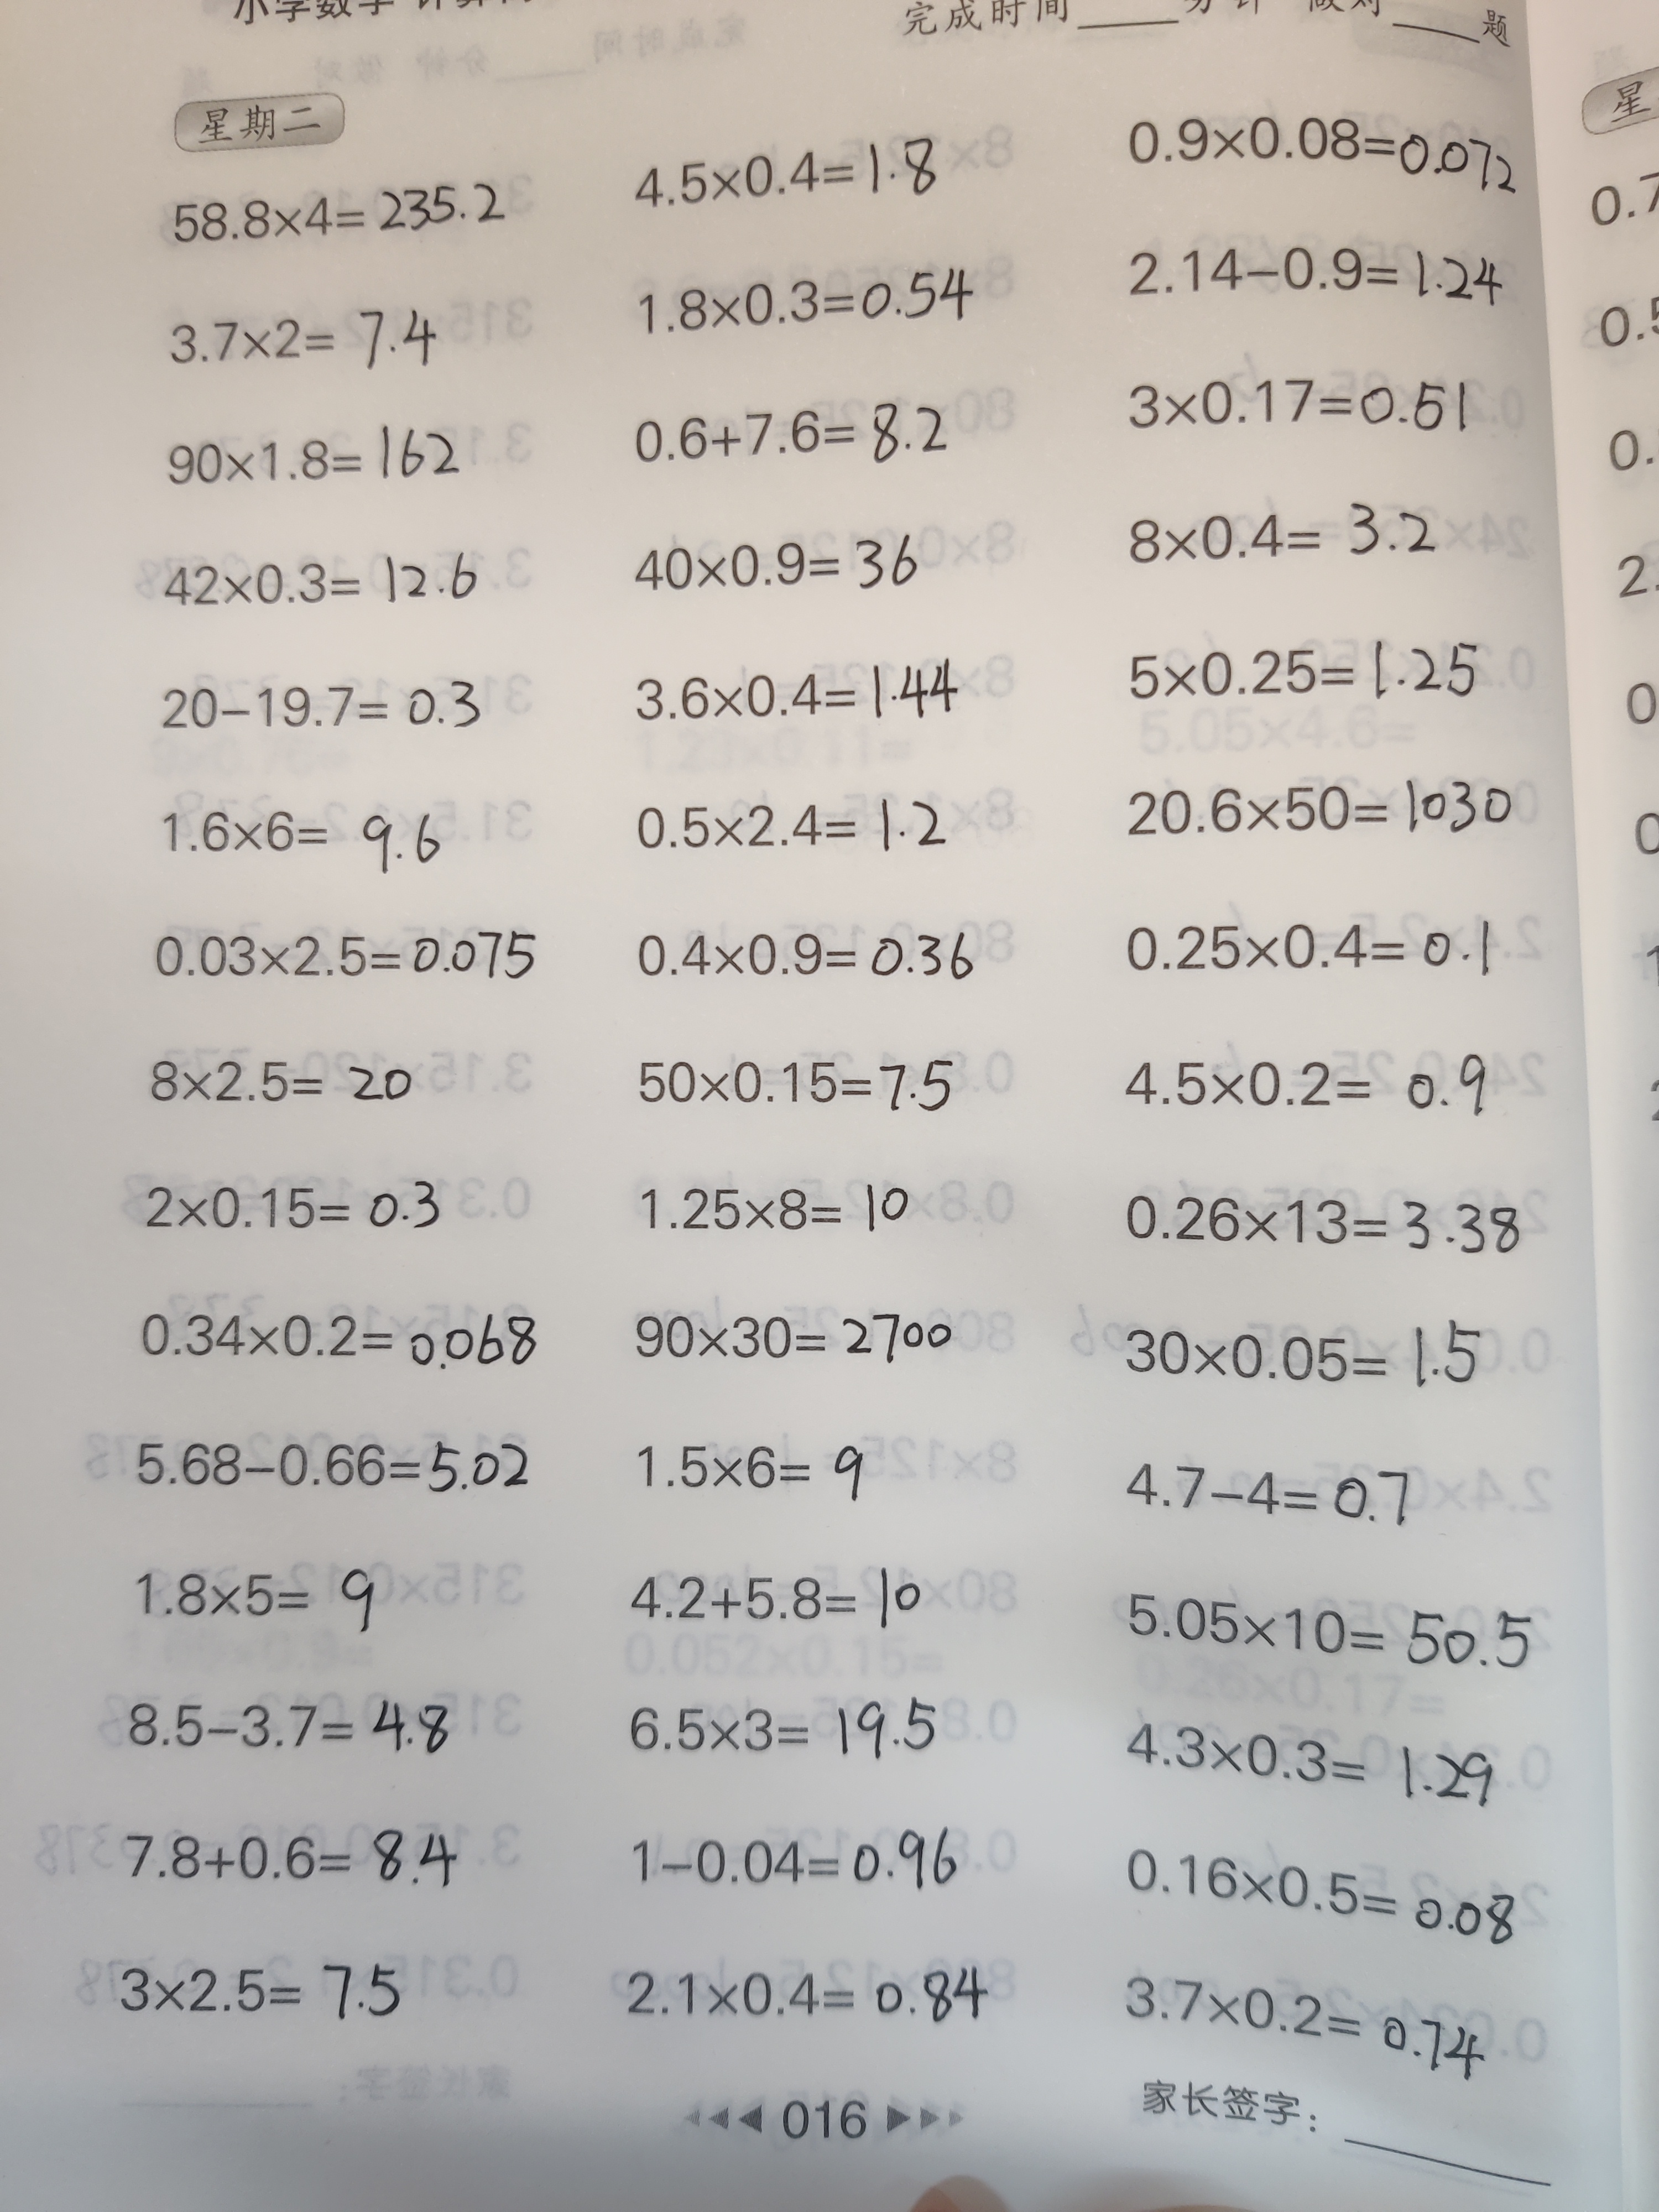 小学数学 计算
完成时间____分钟 做对____题
星期二
58.8×4=235.2
3.7×2=7.4
90×1.8=162
42×0.3=12.6
20−19.7=0.3
1.6×6=9.6
0.03×2.5=0.075
8×2.5=20
2×0.15=0.3
0.34×0.2=0.068
5.68−0.66=5.02
1.8×5=9
8.5−3.7=4.8
7.8+0.6=8.4
3×2.5=7.5
4.5×0.4=1.8
1.8×0.3=0.54
0.6+7.6=8.2
40×0.9=36
3.6×0.4=1.44
0.5×2.4=1.2
0.4×0.9=0.36
50×0.15=7.5
1.25×8=10
90×30=2700
1.5×6=9
4.2+5.8=10
6.5×3=19.5
1−0.04=0.96
2.1×0.4=0.84
0.9×0.08=0.072
2.14−0.9=1.24
3×0.17=0.51
8×0.4=3.2
5×0.25=1.25
20.6×50=1030
0.25×0.4=0.1
4.5×0.2=0.9
0.26×13=3.38
30×0.05=1.5
4.7−4=0.7
5.05×10=50.5
4.3×0.3=1.29
0.16×0.5=0.08
3.7×0.2=0.74
家长签字：____
016
星
0.7
0.5
0.
2.
0
0